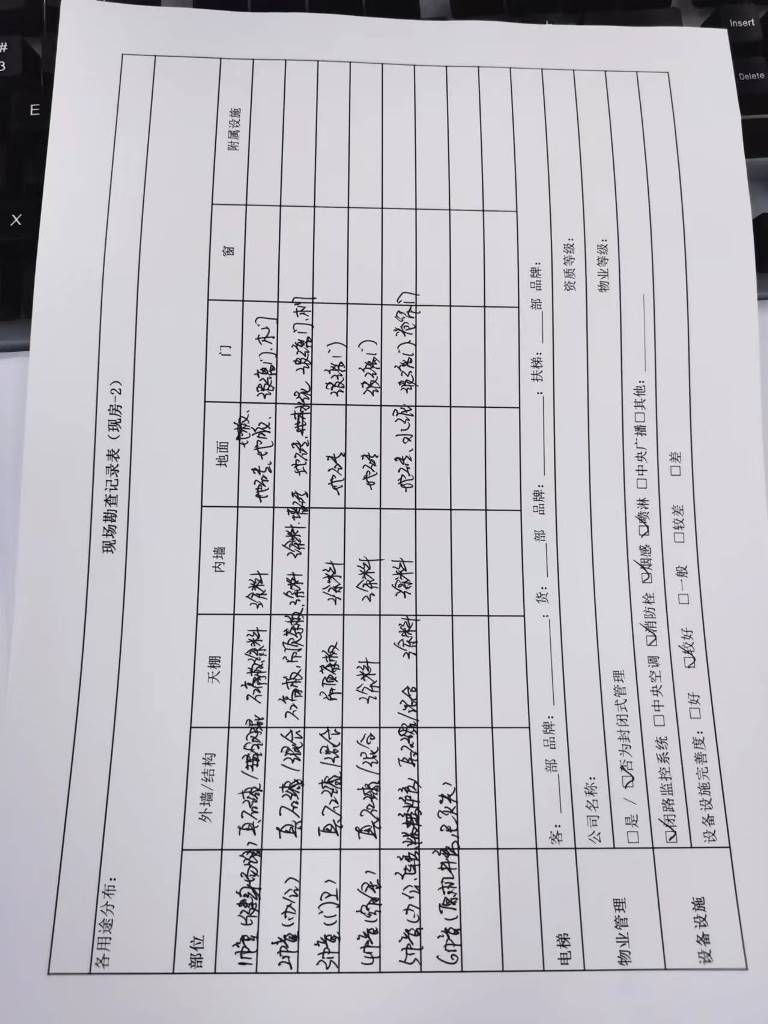 现场勘查记录表（现房-2）
各用途分布：
部位 外墙/结构 天棚 内墙 地面 门 窗 附属设施
1#楼 真石漆/ 石膏板涂料 涂料 地砖、地板、地板、 玻璃门、木门
2#楼（办公） 真石漆/混合 石膏板、吊顶 涂料 涂料 地砖、 玻璃门、木门
3#楼（门卫） 真石漆/混合 吊顶 涂料 地砖 玻璃门
4#楼 真石漆/混合 涂料 涂料 地砖 玻璃门
5#楼（办公、 真石漆/混合 涂料 涂料 地砖、水泥 玻璃门、卷帘门
6#楼
电梯 客：____部 品牌：________；货：____部 品牌：________；扶梯：____部 品牌：
物业管理 公司名称： 资质等级：
□是 / ☑否为封闭式管理 物业等级：
设备设施 ☑闭路监控系统 □中央空调 ☑消防栓 ☑烟感 ☑喷淋 □中央广播 □其他：________
设备设施完善度：□好 ☑较好 □一般 □较差 □差
# 3
E
X
Insert
Delete